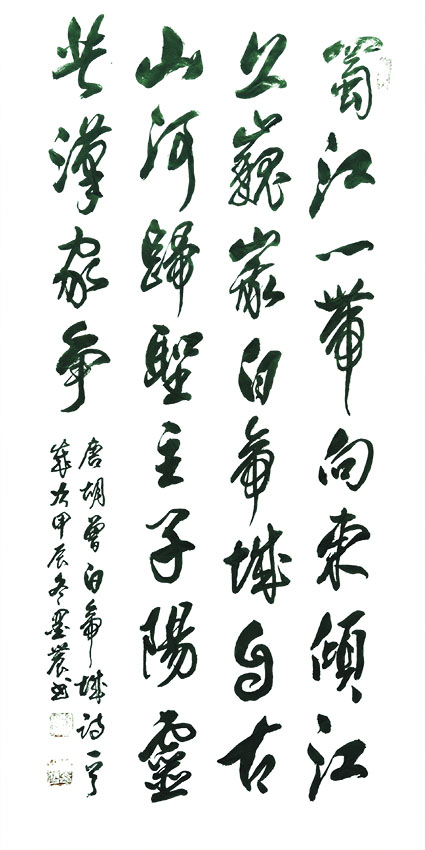 蜀江一帶向東傾江
上巍峩白帝城自古
山河歸聖主子陽虛
共漢家爭
唐胡曾白帝城詩一首
歲次甲辰冬墨農書